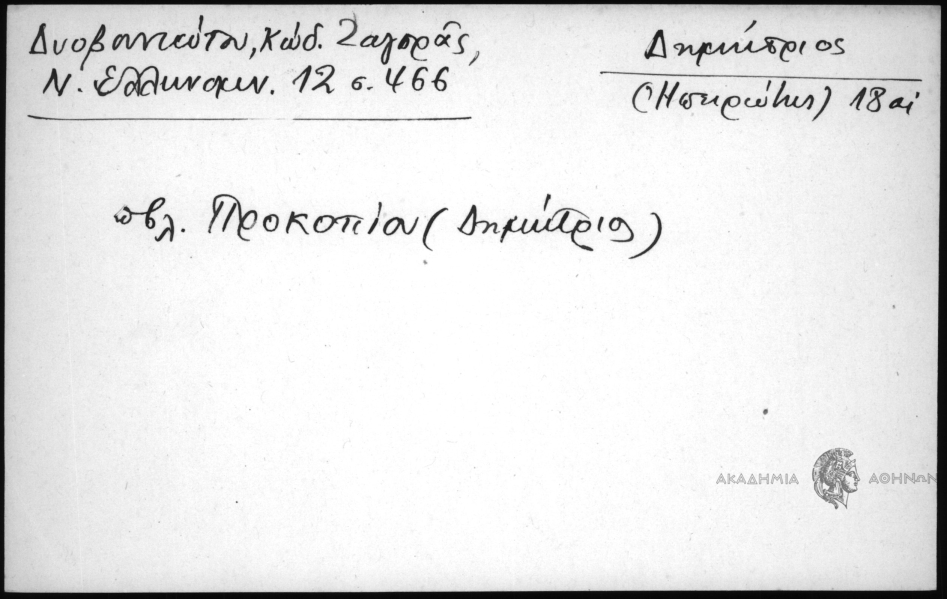 Δυοβουνιώτου, Κώδ. Ζαγορᾶς,
Ν. Ἑλληνομν. 12 σ. 466
Δημήτριος
(Ἠπειρώτης) 18 αἰ
πβλ. Προκοπίου (Δημήτριος)
ΑΚΑΔΗΜΙΑ ΑΘΗΝΩΝ